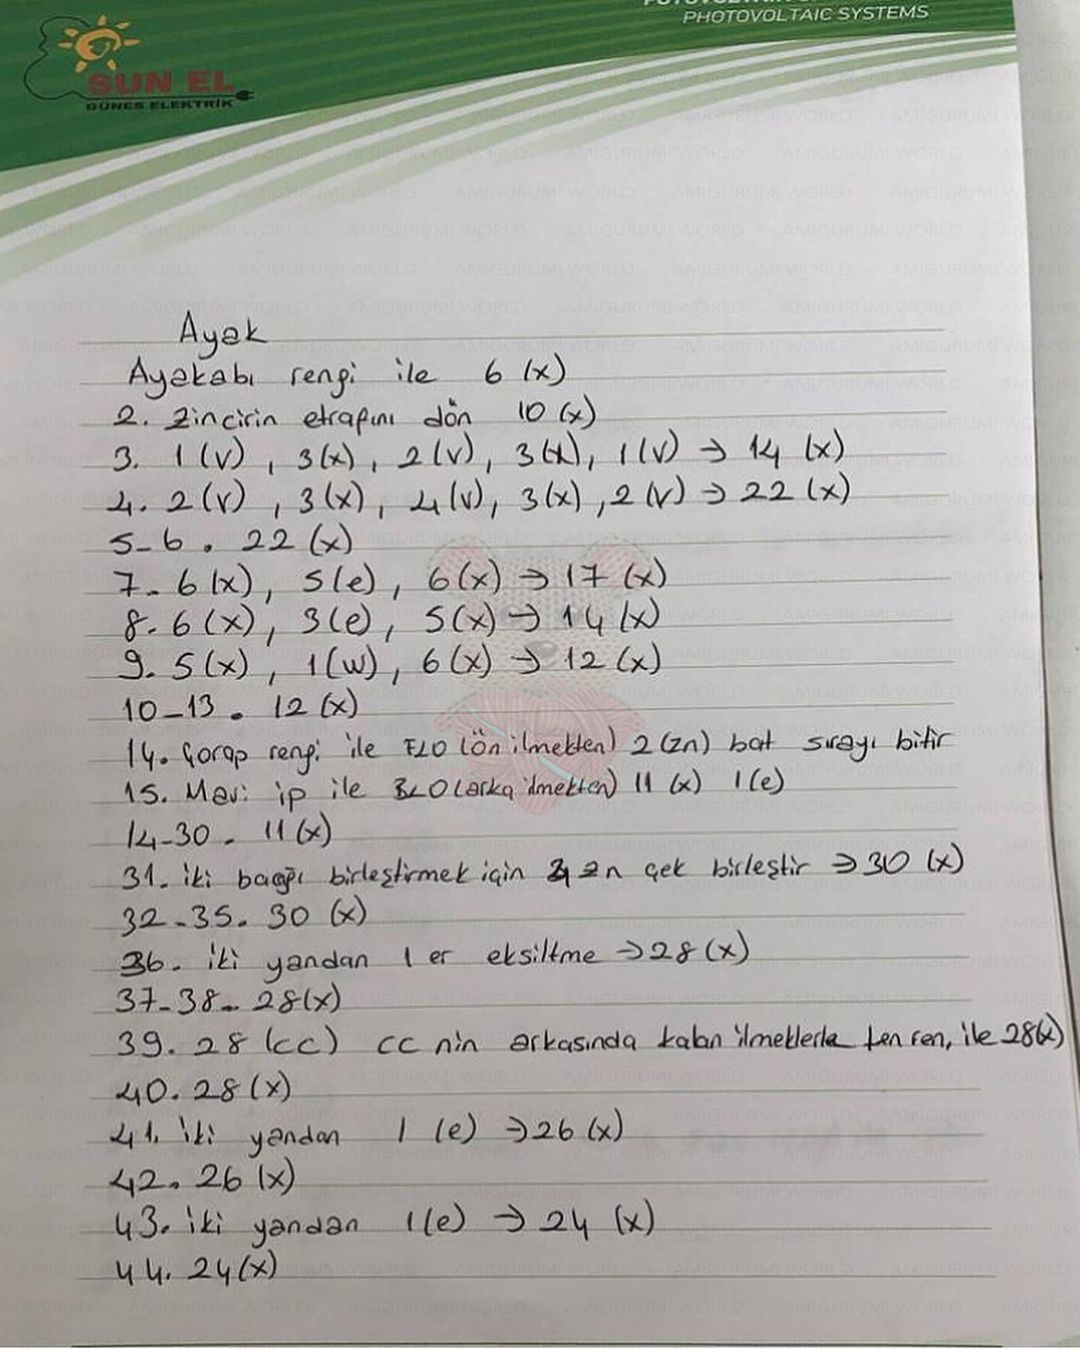 PHOTOVOLTAIC SYSTEMS
SUN EL
GÜNEŞ ELEKTRİK
AMIGURUMI WORLD
Ayak
Ayakabı rengi ile 6 (x)
2. Zincirin etrafını dön 10 (x)
3. 1 (v), 3(x), 2(v), 3(x), 1(v) → 14 (x)
4. 2(v), 3(x), 4(v), 3(x), 2(v) → 22 (x)
5-6. 22 (x)
7- 6(x), 5(e), 6(x) → 17 (x)
8- 6(x), 3(e), 5(x) → 14 (x)
9. 5(x), 1(w), 6(x) → 12 (x)
10-13. 12 (x)
14. Çorap rengi ile FLO (Ön ilmekten) 2(zn) bat sırayı bitir
15. Mavi ip ile BLO (arka ilmekten) 11 (x) 1(e)
14-30- 11 (x)
31. iki bacağı birleştirmek için zn çek birleştir → 30 (x)
32-35. 30 (x)
36. iki yandan 1 er eksiltme → 28 (x)
37-38- 28(x)
39. 28 (cc) cc nin arkasında kalan ilmeklerle ten ile 28(x)
40. 28 (x)
41. iki yandan 1 (e) → 26 (x)
42. 26 (x)
43. iki yandan 1(e) → 24 (x)
44. 24(x)